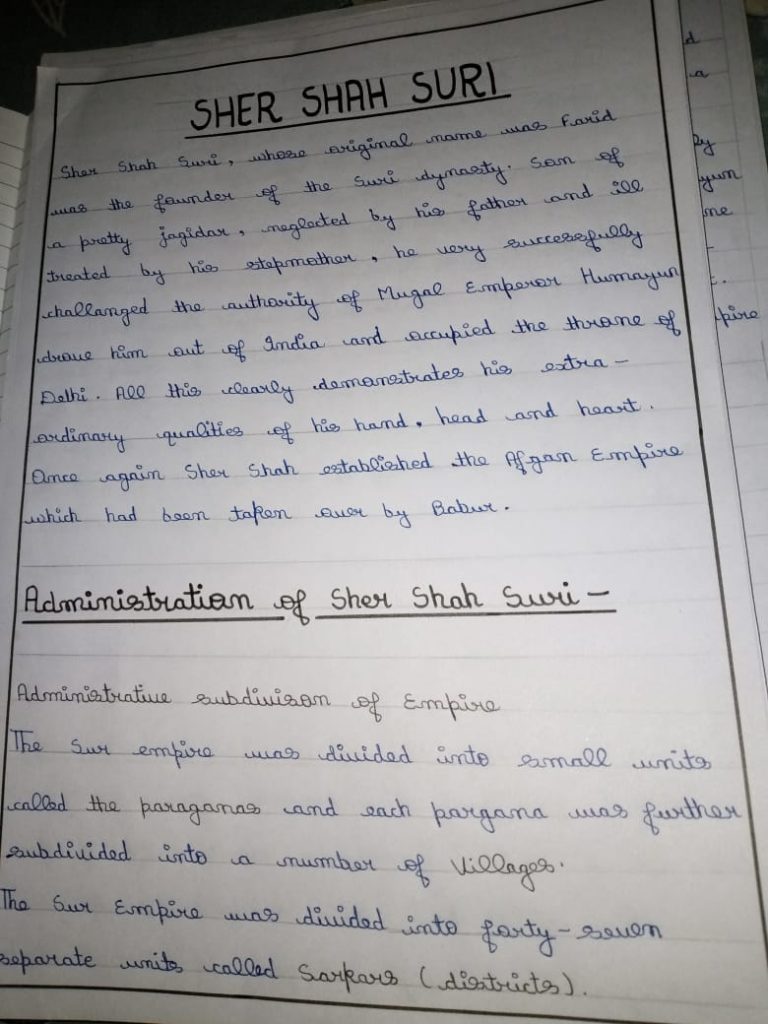 SHER SHAH SURI
Sher Shah Suri, whose original name was Farid
was the founder of the Suri dynasty. Son of
a pretty jagidar, neglected by his father and ill
treated by his stepmother, he very successfully
challanged the authority of Mugal Emperor Humayun
drove him out of India and occupied the throne of
Delhi. All this clearly demonstrates his extra-
ordinary qualities of his hand, head and heart.
Once again Sher Shah established the Afgan Empire
which had been taken over by Babur.
Administration of Sher Shah Suri-
Administrative subdivison of Empire
The Sur empire was divided into small units
called the paraganas and each pargana was further
subdivided into a number of villages.
The Sur Empire was divided into forty-seven
separate units called Sarkars (districts).